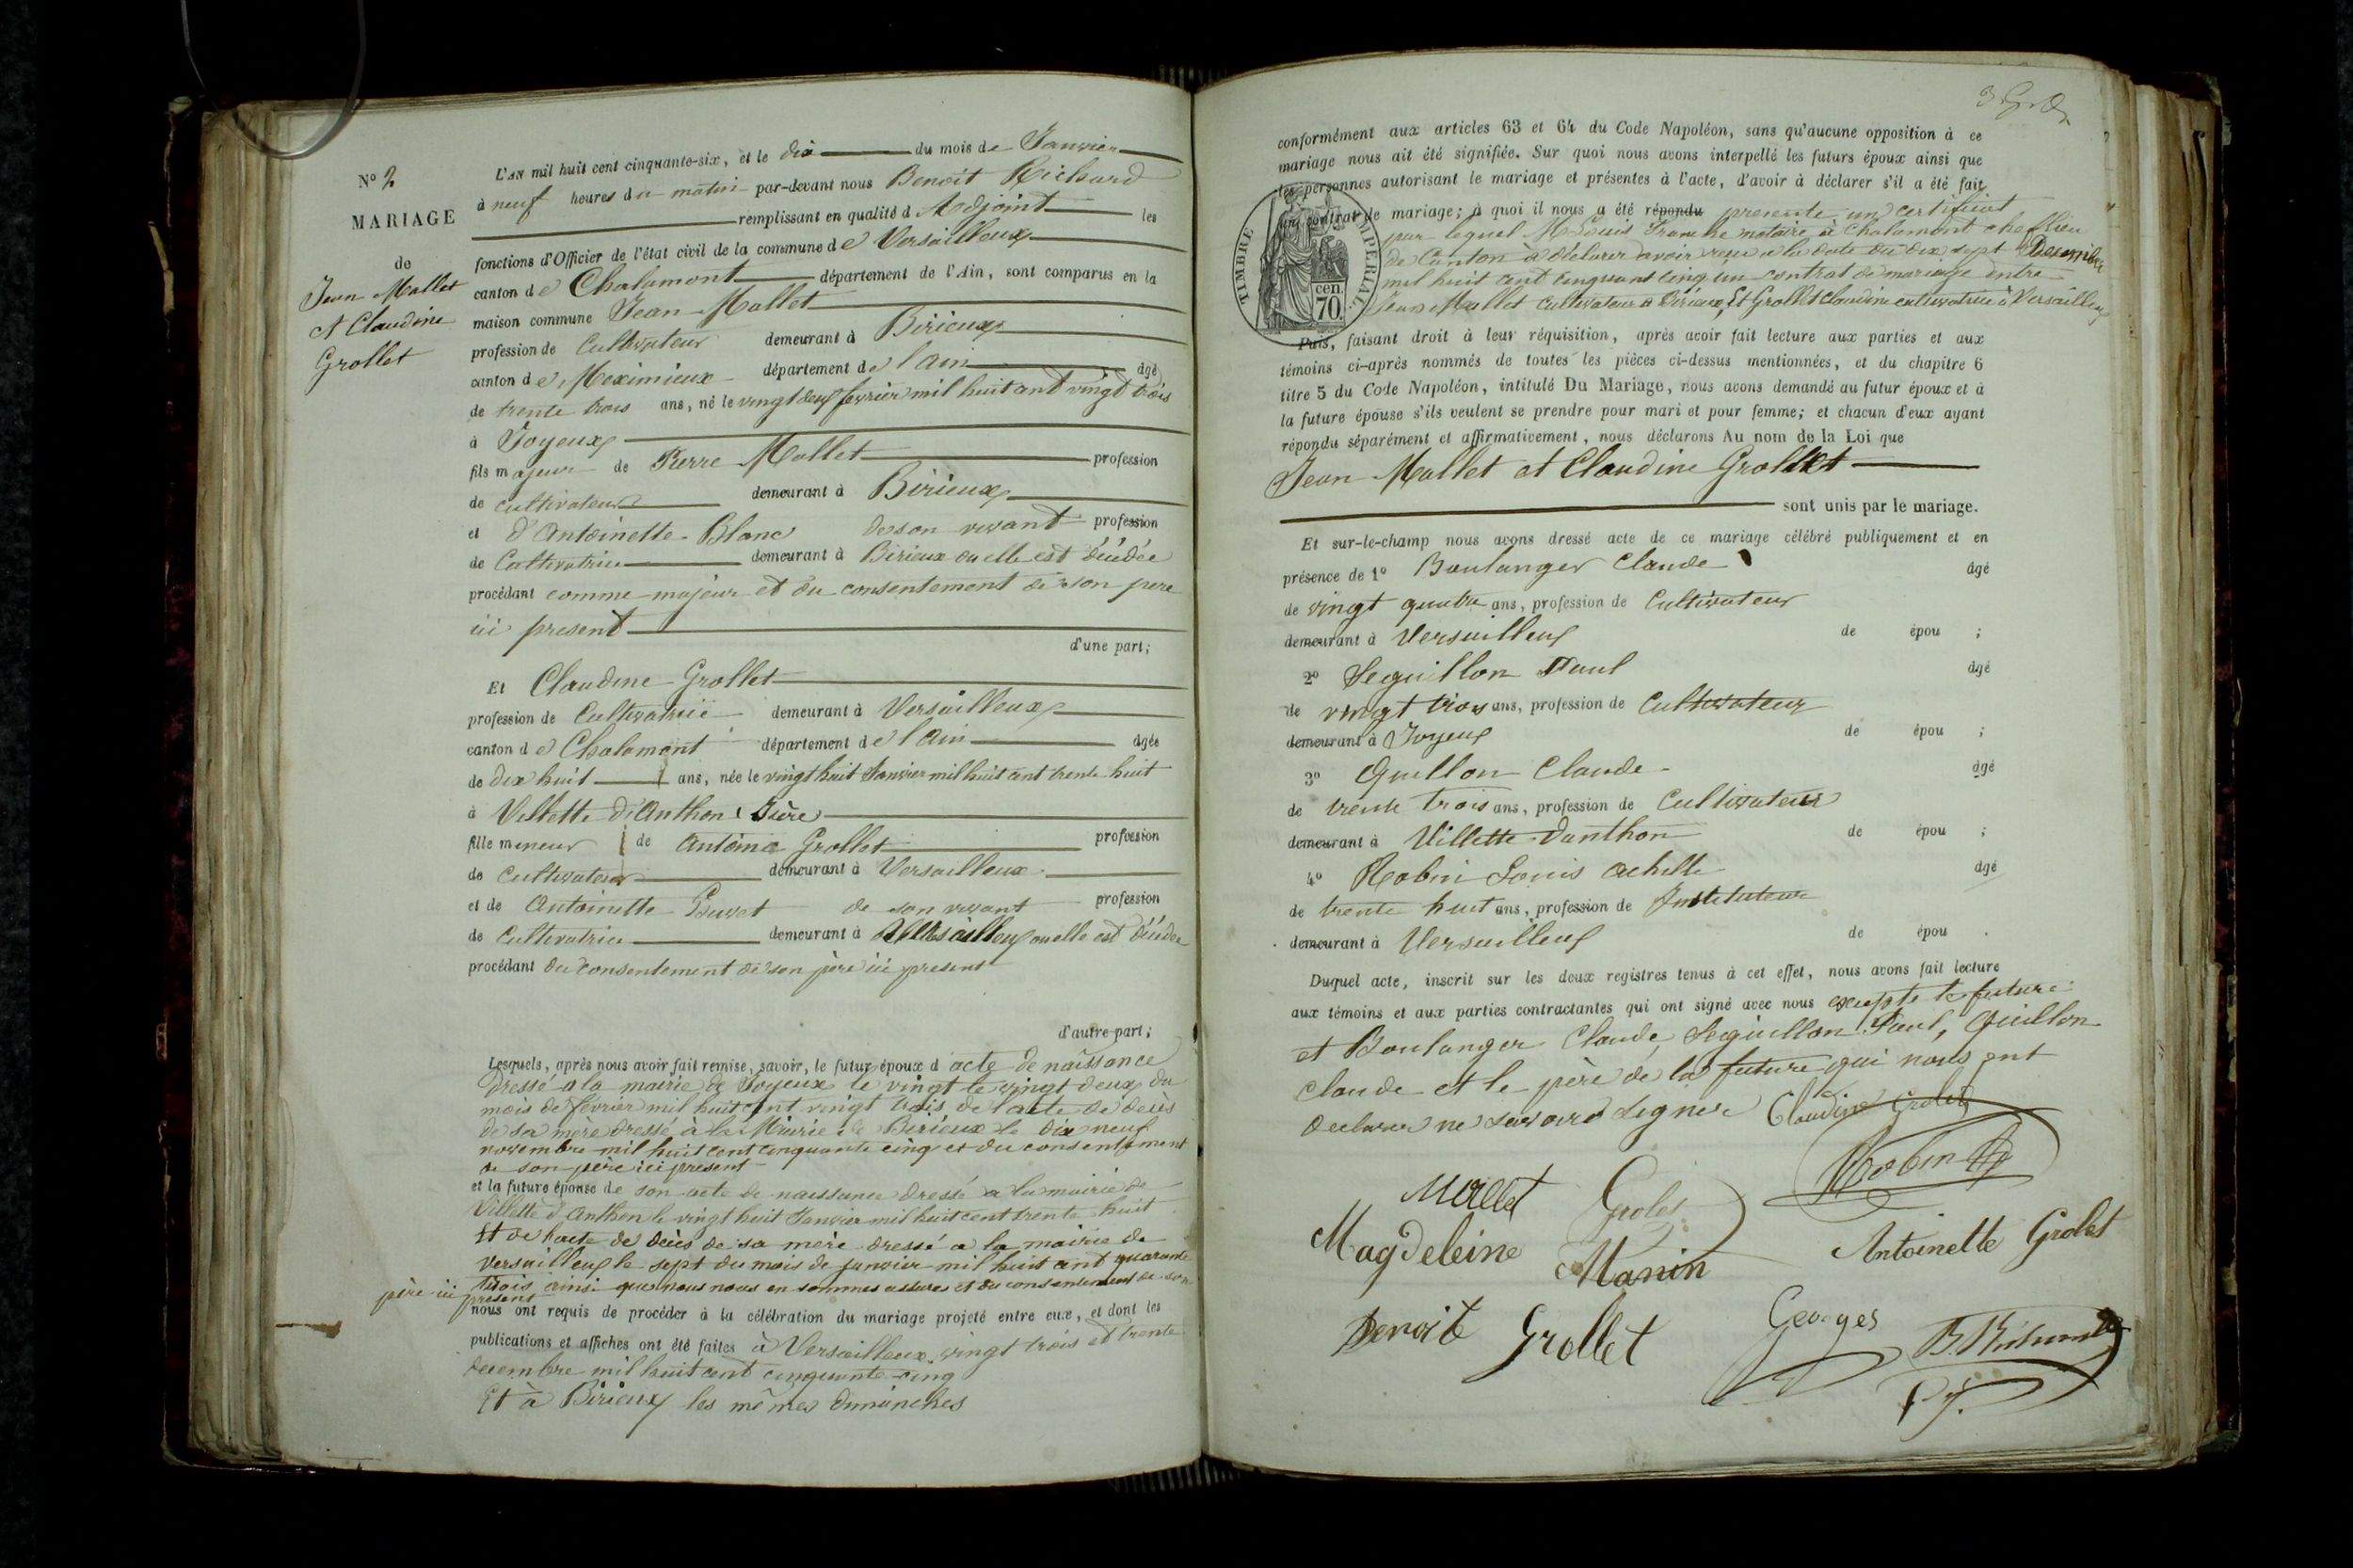 N° 2
MARIAGE
de
Jean Mallet
et Claudine
Grollet
L'AN mil huit cent cinquante-six, et le dix du mois de Janvier
à neuf heures du matin par-devant nous Benoit Richard
remplissant en qualité d'Adjoint les
fonctions d'Officier de l'état civil de la commune de Versailleux
canton de Chalamont département de l'Ain, sont comparus en la
maison commune Jean Mallet
profession de Cultivateur demeurant à Birieux
canton de Meximieux département de l'ain âgé
de trente trois ans, né le vingt deux fevrier mil huit cent vingt trois
à Joyeux
fils majeur de Pierre Mallet profession
de cultivateur demeurant à Birieux
et d'Antoinette Blanc de son vivant profession
de Cultivatrice demeurant à Birieux ou elle est décédée
procédant comme majeur et du consentement de son pere
ici present
d'une part;
Et Claudine Grollet
profession de Cultivatrice demeurant à Versailleux
canton de Chalamont département de l'ain âgée
de dix huit ans, née le vingt huit Janvier mil huit cent trente huit
à Villette d'Anthon Isère
fille mineur de Antoine Grollet profession
de Cultivateur demeurant à Versailleux
et de Antoinette de son vivant profession
de Cultivatrice demeurant à Versailleux ou elle est décédée
procédant du consentement de son père ici present
d'autre part;
Lesquels, après nous avoir fait remise, savoir, le futur époux d acte de naissance
dressé a la mairie de Joyeux le vingt le vingt deux du
mois de fevrier mil huit cent vingt trois de l'acte de décès
de sa mère dressé à la Mairie de Birieux le dix neuf
novembre mil huit cent cinquante cinq et du consentement
de son père ici present
et la future épouse de son acte de naissance dressé a la mairie de
Villette d'Anthon le vingt huit Janvier mil huit cent trente huit
Et de l'acte de décès de sa mère dressé a la mairie de
Versailleux le sept du mois de janvier mil huit cent quarante
trois ainsi que nous nous en sommes assurés et du consentement de son
père ici present
nous ont requis de procéder à la célébration du mariage projeté entre eux, et dont les
publications et affiches ont été faites à Versailleux vingt trois et trente
decembre mil huit cent cinquante cinq
Et à Birieux les mêmes dimanches
conformément aux articles 63 et 64 du Code Napoléon, sans qu'aucune opposition à ce
mariage nous ait été signifiée. Sur quoi nous avons interpellé les futurs époux ainsi que
les personnes autorisant le mariage et présentes à l'acte, d'avoir à déclarer s'il a été fait
un contrat de mariage; à quoi il nous a été répondu presenté un certificat
par lequel M Louis notaire à Chalamont chef lieu
de Canton à déclarer avoir recu a la date du dix sept Decembre
mil huit cent cinquante cinq un contrat de mariage entre
Jean Mallet Cultivateur à Birieux, Et Grollet Claudine cultivatrice à Versailleux
TIMBRE IMPERIAL
70 cen.
Puis, faisant droit à leur réquisition, après avoir fait lecture aux parties et aux
témoins ci-après nommés de toutes les pièces ci-dessus mentionnées, et du chapitre 6
titre 5 du Code Napoléon, intitulé Du Mariage, nous avons demandé au futur époux et à
la future épouse s'ils veulent se prendre pour mari et pour femme; et chacun d'eux ayant
répondu séparément et affirmativement, nous déclarons Au nom de la Loi que
Jean Mallet et Claudine Grollet
sont unis par le mariage.
Et sur-le-champ nous avons dressé acte de ce mariage célébré publiquement et en
présence de 1° Boulanger Claude âgé
de vingt quatre ans, profession de Cultivateur
demeurant à Versailleux de épou ;
2° Seguillon Paul âgé
de vingt trois ans, profession de Cultivateur
demeurant à Joyeux de épou ;
3° Quillon Claude âgé
de trente trois ans, profession de Cultivateur
demeurant à Villette Danthon de épou ;
4° Robin Louis Achille âgé
de trente huit ans, profession de Instituteur
demeurant à Versailleux de épou .
Duquel acte, inscrit sur les deux registres tenus à cet effet, nous avons fait lecture
aux témoins et aux parties contractantes qui ont signé avec nous excepté le futur
et Boulanger Claude, Seguillon Paul, Quillon
Claude et le père de la future qui nous ont
declarer ne savoire signer Claudine Grolet
Robin
Mallet Groles
Magdeleine Manin Antoinette Grolet
Benoit Grollet Georges B. Richard